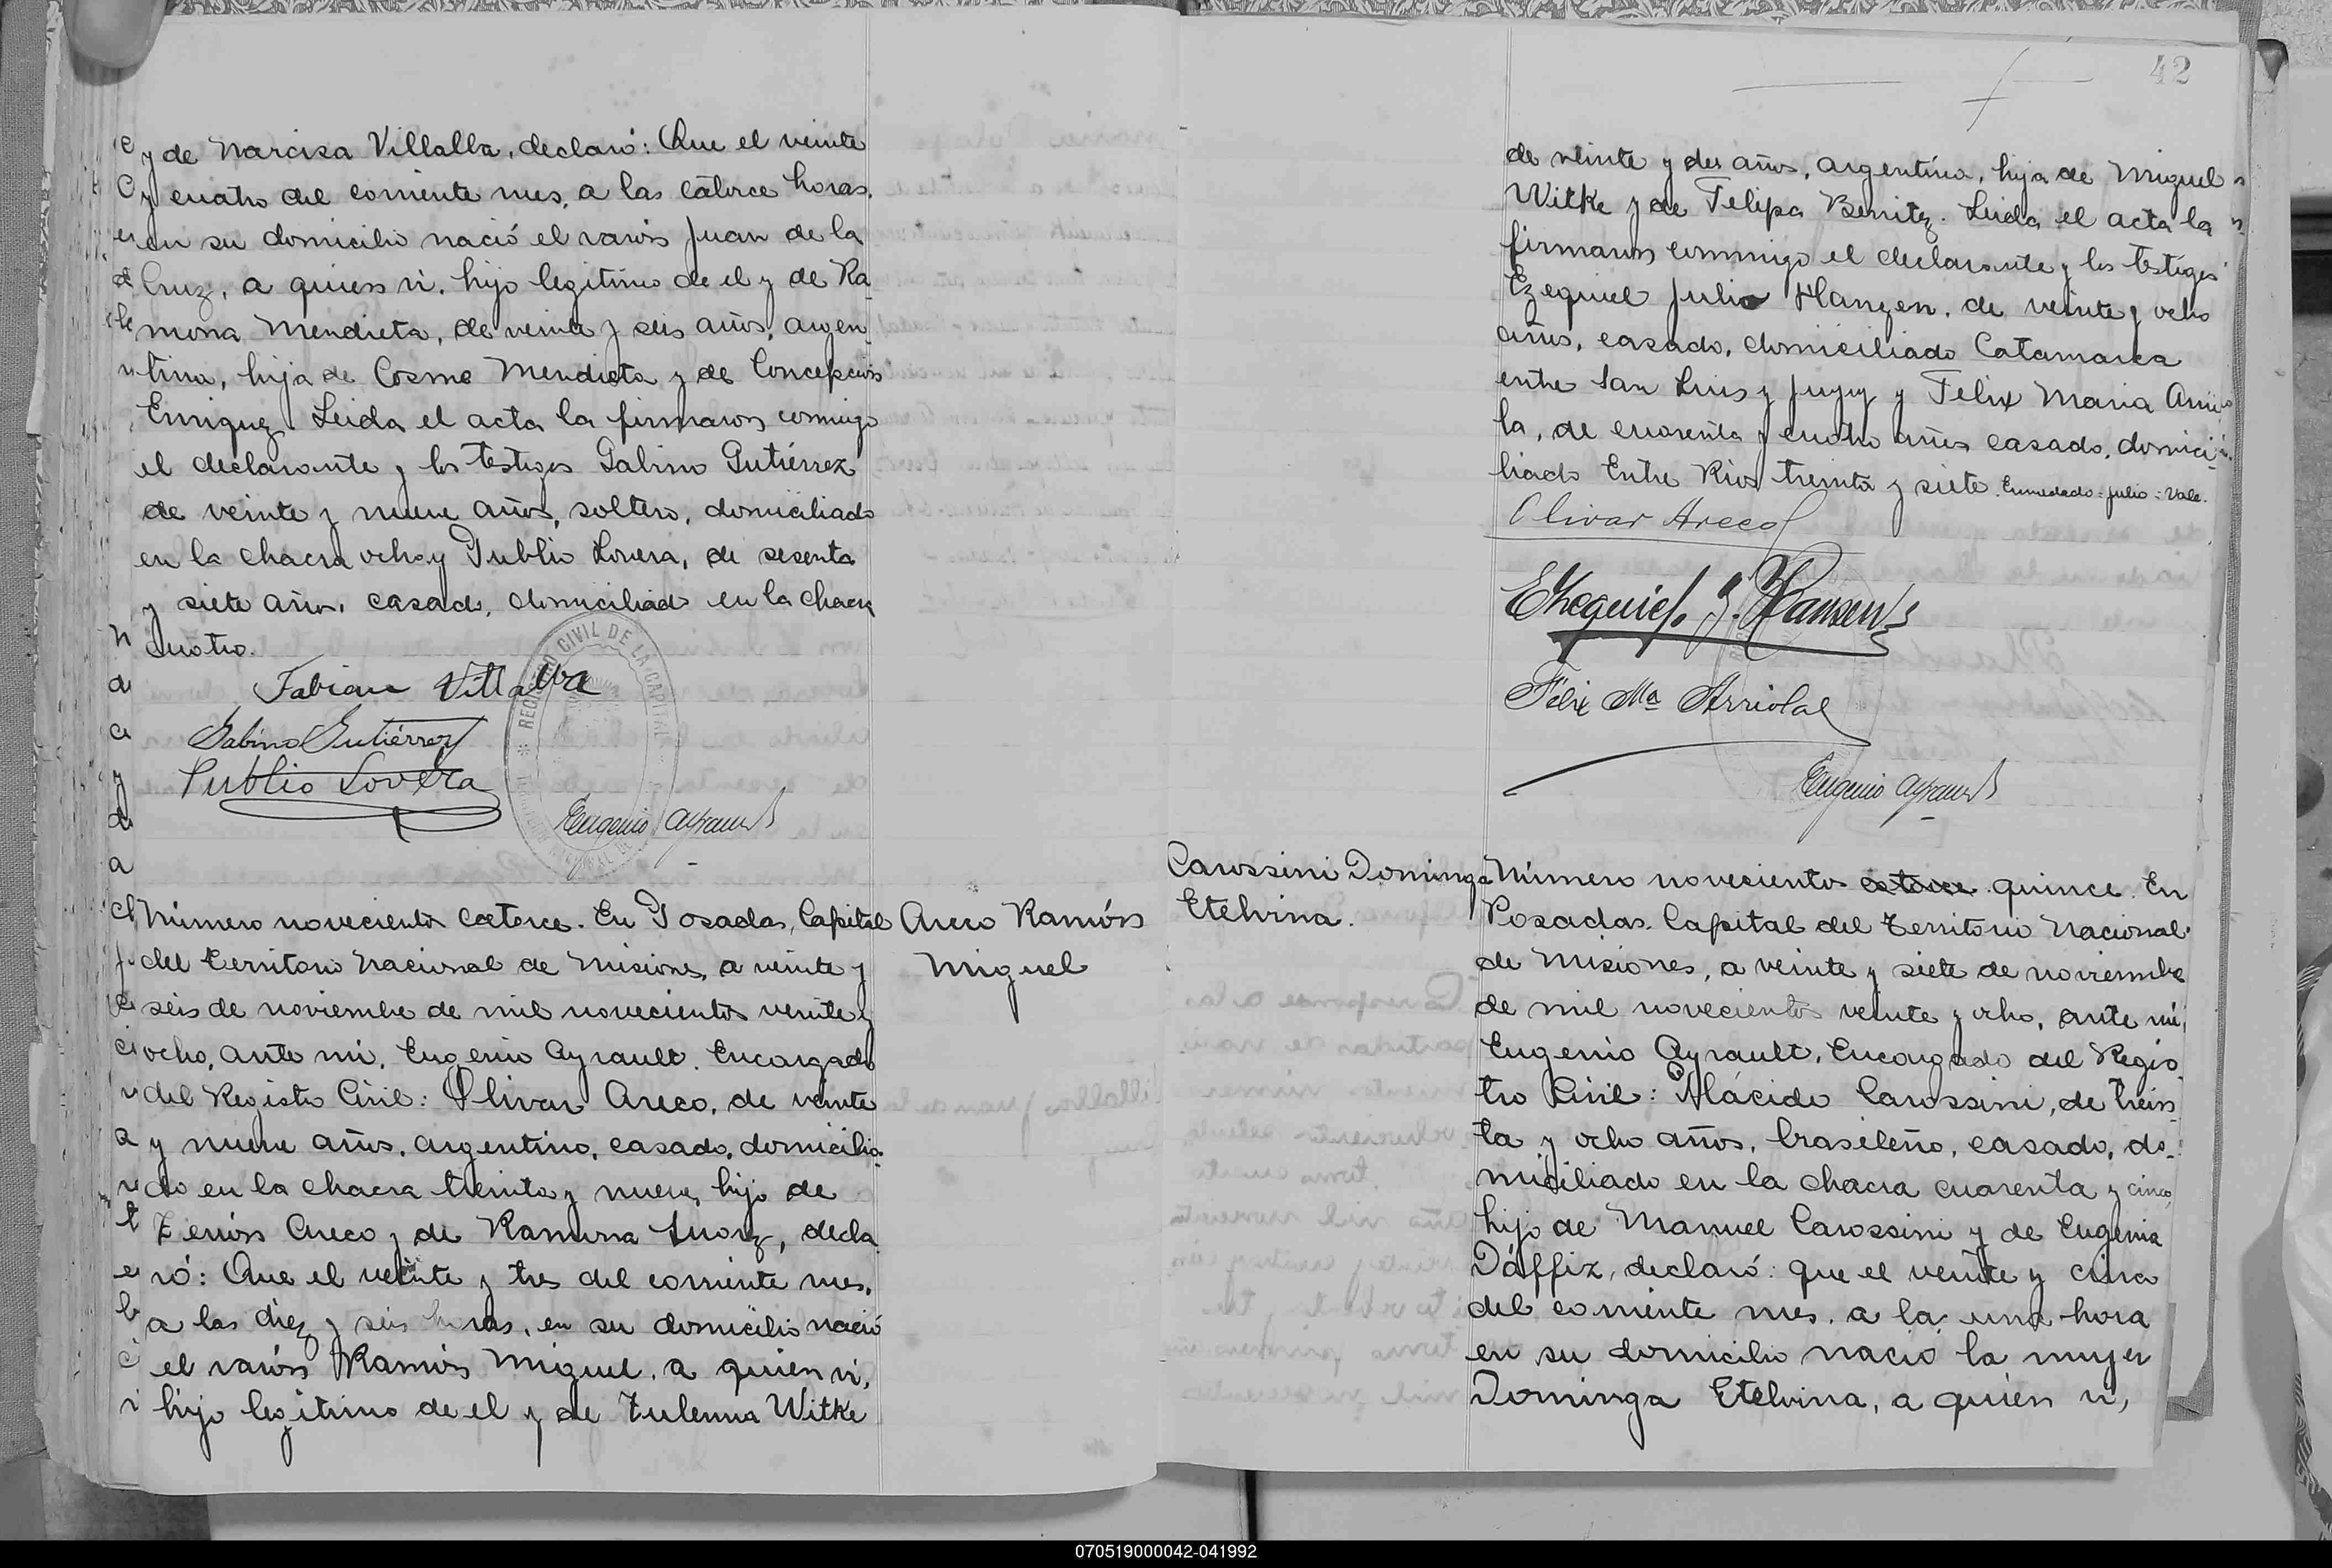 y de Narcisa Villalba, declaró: Que el veinte
y cuatro del corriente mes, a las catorce horas,
en su domicilio nació el varón Juan de la
Cruz, a quien ví, hijo legítimo de el y de Ra-
mona Mendieta, de veinte y seis años, argen-
tina, hija de Cosme Mendieta y de Concepción
Enriquez. Leida el acta la firmaron conmigo
el declarante y los testigos Gabino Gutiérrez
de veinte y nueve años, soltero, domiciliado
en la chacra ocho y Publio Lovera, de sesenta
y siete años, casado, domiciliado en la chacra
cuatro.
Fabian Villalva
Gabino Gutiérrez
Publio Lovera
REGISTRO CIVIL DE LA CAPITAL
Eugenio Ayrault
Número novecientos catorce. En Posadas, Capital
del Territorio Nacional de Misiones, a veinte y
seis de noviembre de mil novecientos veinte y
ocho, ante mí, Eugenio Ayrault, Encargado
del Registro Civil: Olivar Areco, de veinte
y nueve años, argentino, casado, domicilia-
do en la chacra treinta y nueve, hijo de
Zenón Areco y de Ramona Suarez, decla-
ró: Que el veinte y tres del corriente mes,
a las diez y seis horas, en su domicilio nació
el varón Ramón Miguel, a quien ví,
hijo legítimo de el y de Zulema Witke
Areco Ramón
Miguel
42
de veinte y dos años, argentina, hija de Miguel
Witke y de Felipa Benitez. Leida el acta la
firmaron conmigo el declarante y los testigos
Ezequiel Julio Hansen, de veinte y ocho
años, casado, domiciliado Catamarca
entre San Luis y Jujuy y Felix Maria Arrio-
la, de cuarenta y cuatro años casado, domici-
liado Entre Rios treinta y siete. Enmendado: Julio: Vale.
Olivar Areco
Ezequiel J. Hansen
Félix Ma Arriola
Eugenio Ayrault
Carossini Dominga
Etelvina.
Número novecientos catorce quince. En
Posadas, Capital del Territorio Nacional
de Misiones, a veinte y siete de noviembre
de mil novecientos veinte y ocho, ante mí,
Eugenio Ayrault, Encargado del Regis-
tro Civil: Plácido Carossini, de trein-
ta y ocho años, brasileño, casado, do-
miciliado en la chacra cuarenta y cinco,
hijo de Manuel Carossini y de Eugenia
Dáffiz, declaró: que el veinte y cinco
del corriente mes, a la una hora
en su domicilio nació la mujer
Dominga Etelvina, a quien ví,
070519000042-041992